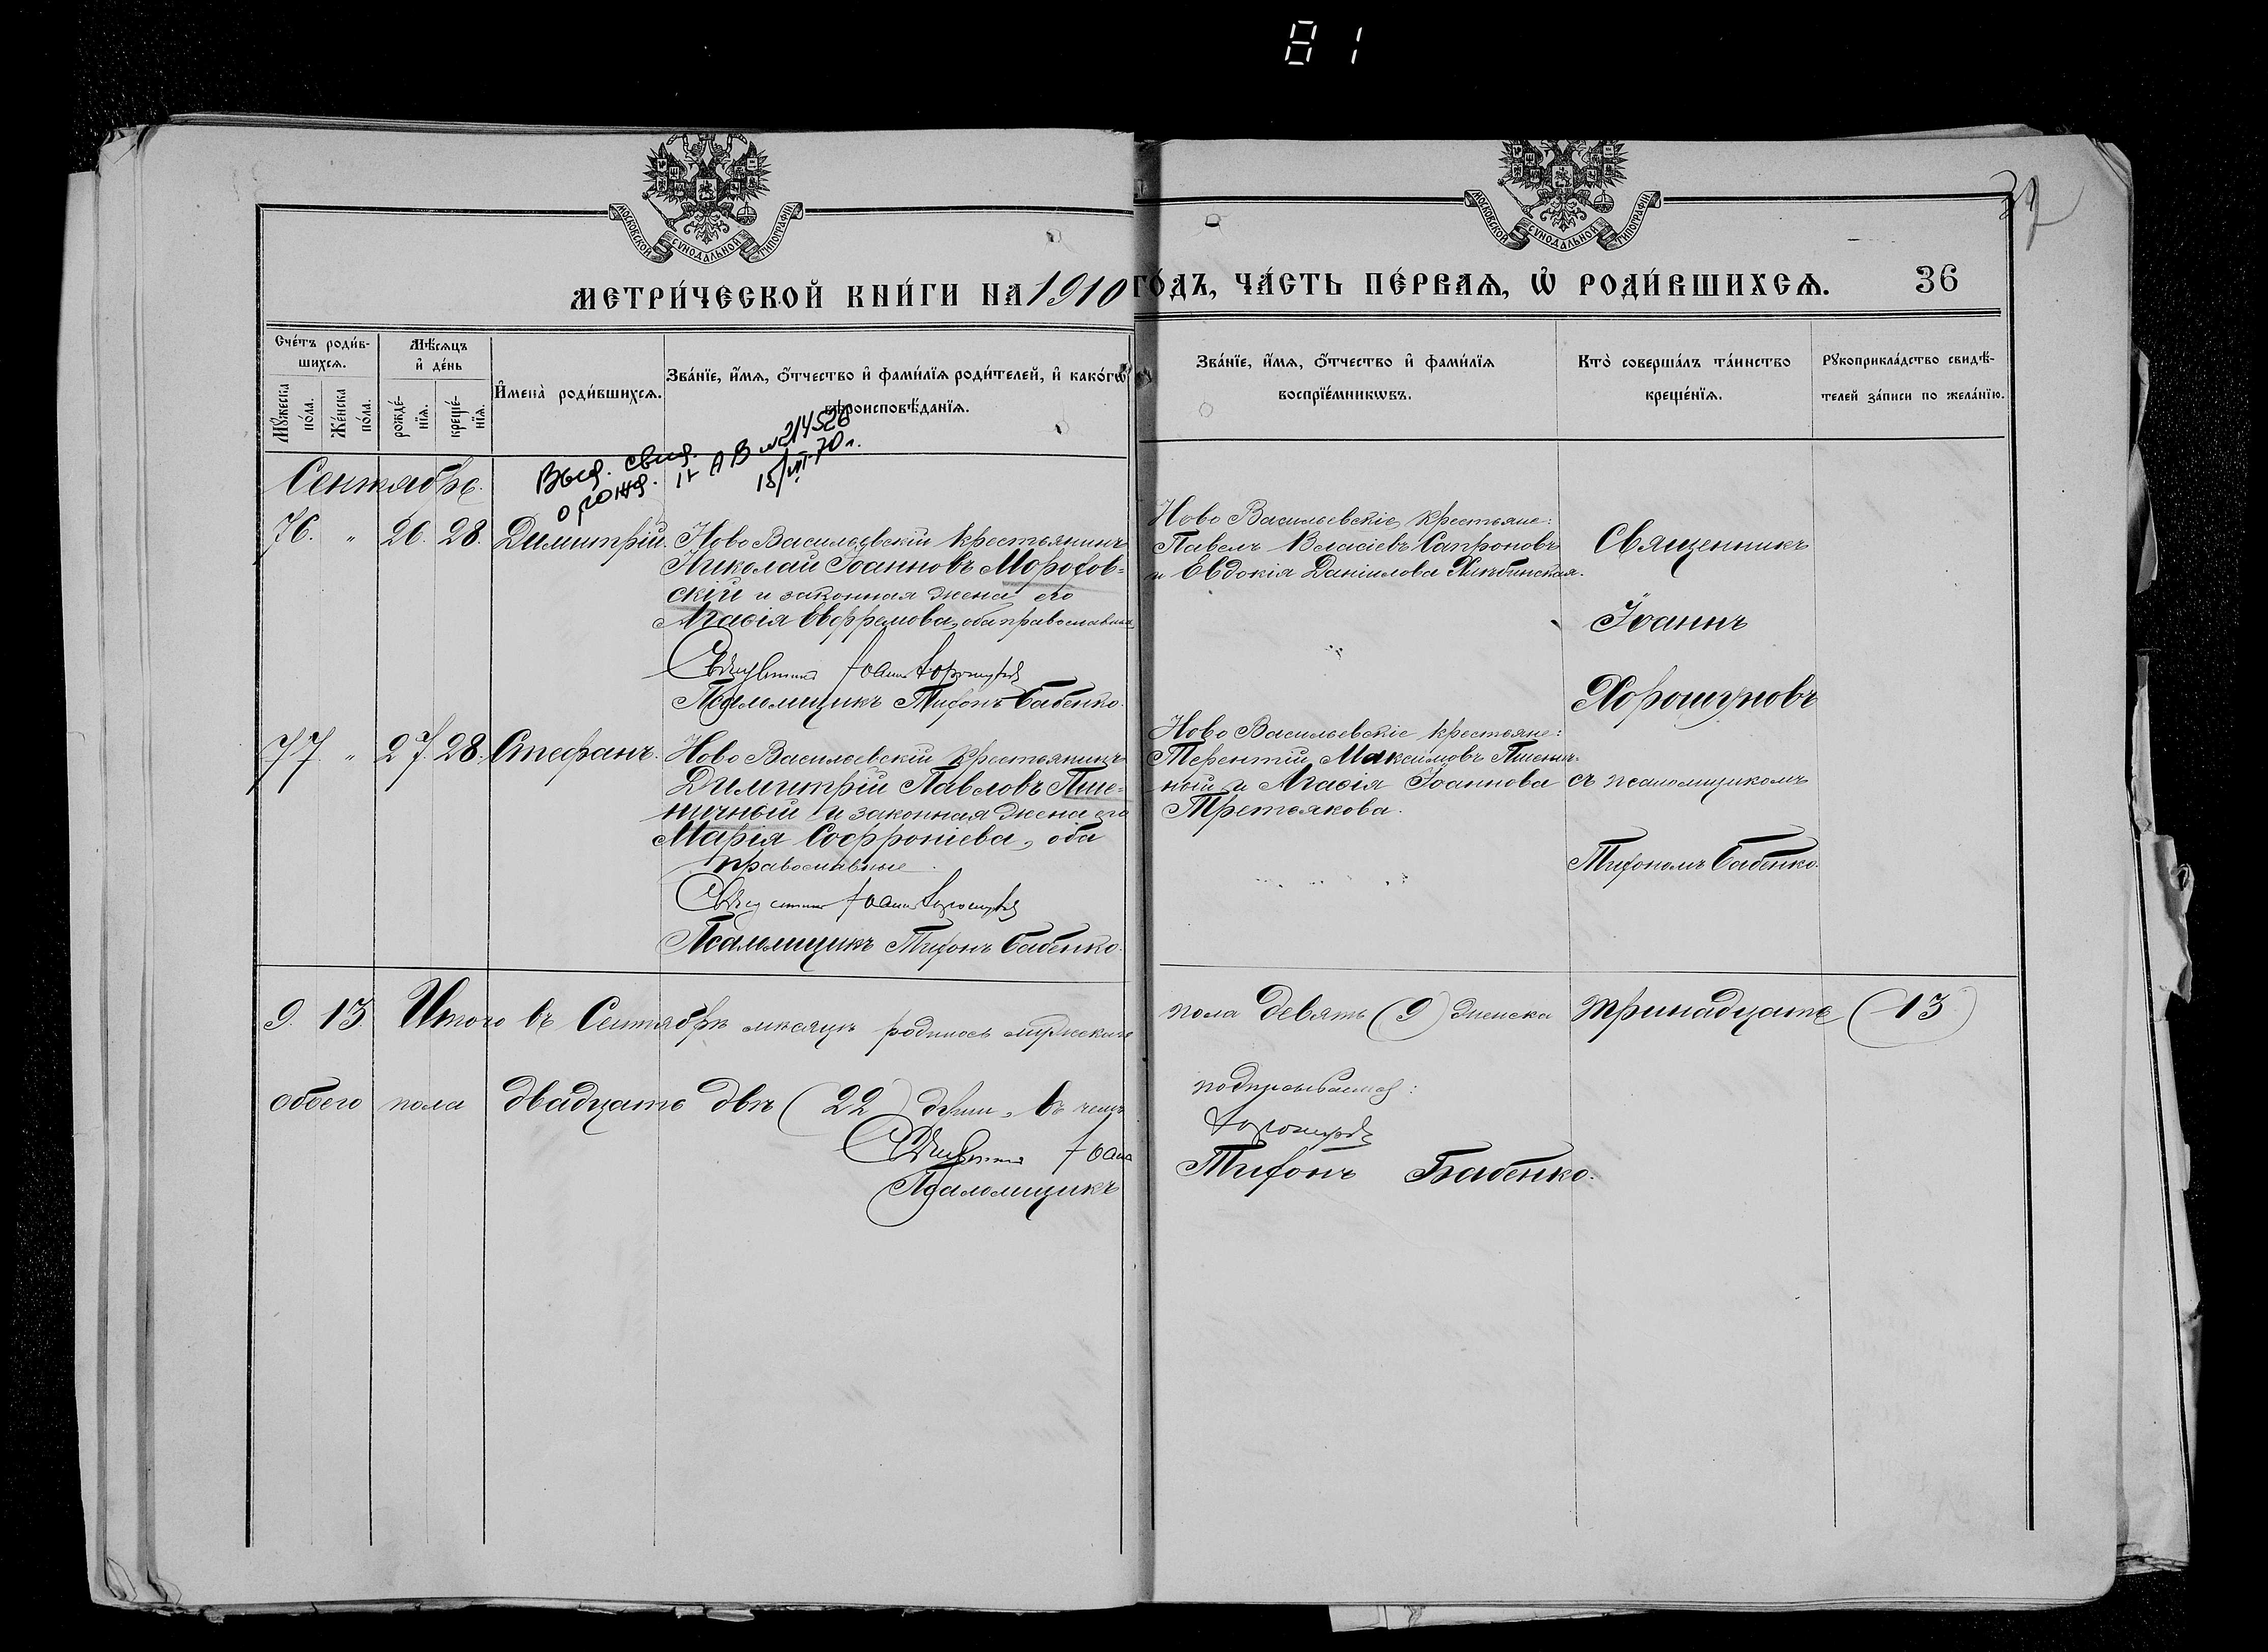 81
МОСКОВСКОЙ СѴНОДАЛЬНОЙ ТИПОГРАФІИ
МОСКОВСКОЙ СѴНОДАЛЬНОЙ ТИПОГРАФІИ
37
МЕТРИ́ЧЕСКОЙ КНИ́ГИ НА 1910 ГО́ДЪ, ЧА́СТЬ ПЕ́РВАѦ, Ѡ҆ РОДИ́ВШИХСѦ. 36
Сче́тъ роди́вшихсѧ.
Мꙋ́жеска по́ла.
Же́нска по́ла.
Мѣ́сѧцъ и҆ де́нь
рожде́нїѧ.
креще́нїѧ.
И҆мена̀ роди́вшихсѧ.
Зва́нїе, и҆́мѧ, ѻ҆́тчество и҆ фами́лїѧ роди́телей, и҆ како́гѡ
вѣроисповѣ́данїѧ.
Зва́нїе, и҆́мѧ, ѻ҆́тчество и҆ фами́лїѧ
воспрїе́мникѡвъ.
Кто̀ соверша́лъ та́инство
креще́нїѧ.
Рꙋкоприкла́дство свидѣ́-
телей за́писи по жела́нїю.
Выд. свид.
о рожд. 1+ АВ № 214526
15/VII-70 г.
Сентябрь.
76. " 26. 28. Димитрій.
Ново Васильевскій крестьянинъ
Николай Іоанновъ Морозов-
скій и законная жена его
Агаѳія Евфремова, оба православные
Священникъ Іоаннъ Хорошуновъ
Псаломщикъ Тихонъ Бабенко.
Ново Васильевскіе крестьяне:
Павелъ Власіевъ Сапроновъ
и Евдокія Даніилова Хлѣбинская.
Священникъ
Іоаннъ
Хорошуновъ
77. " 27. 28. Стефанъ.
Ново Васильевскій крестьянинъ
Димитрій Павловъ Пше-
ничный и законная жена его
Марія Софроніева, оба
православные.
Священникъ Іоаннъ Хорошуновъ
Псаломщикъ Тихонъ Бабенко.
Ново Васильевскіе крестьяне:
Терентій Максимовъ Пшенич-
ный и Агаѳія Іоаннова
Третьякова.
съ псаломщикомъ
Тихономъ Бабенко.
9. 13. Итого въ Сентябрѣ мѣсяцѣ родилось мужскаго пола девять (9) женска тринадцать (13)
обоего пола двадцать двѣ (22) дѣти, въ чемъ подписываемся:
Священникъ Іоаннъ Хорошуновъ
Псаломщикъ Тихонъ Бабенко.